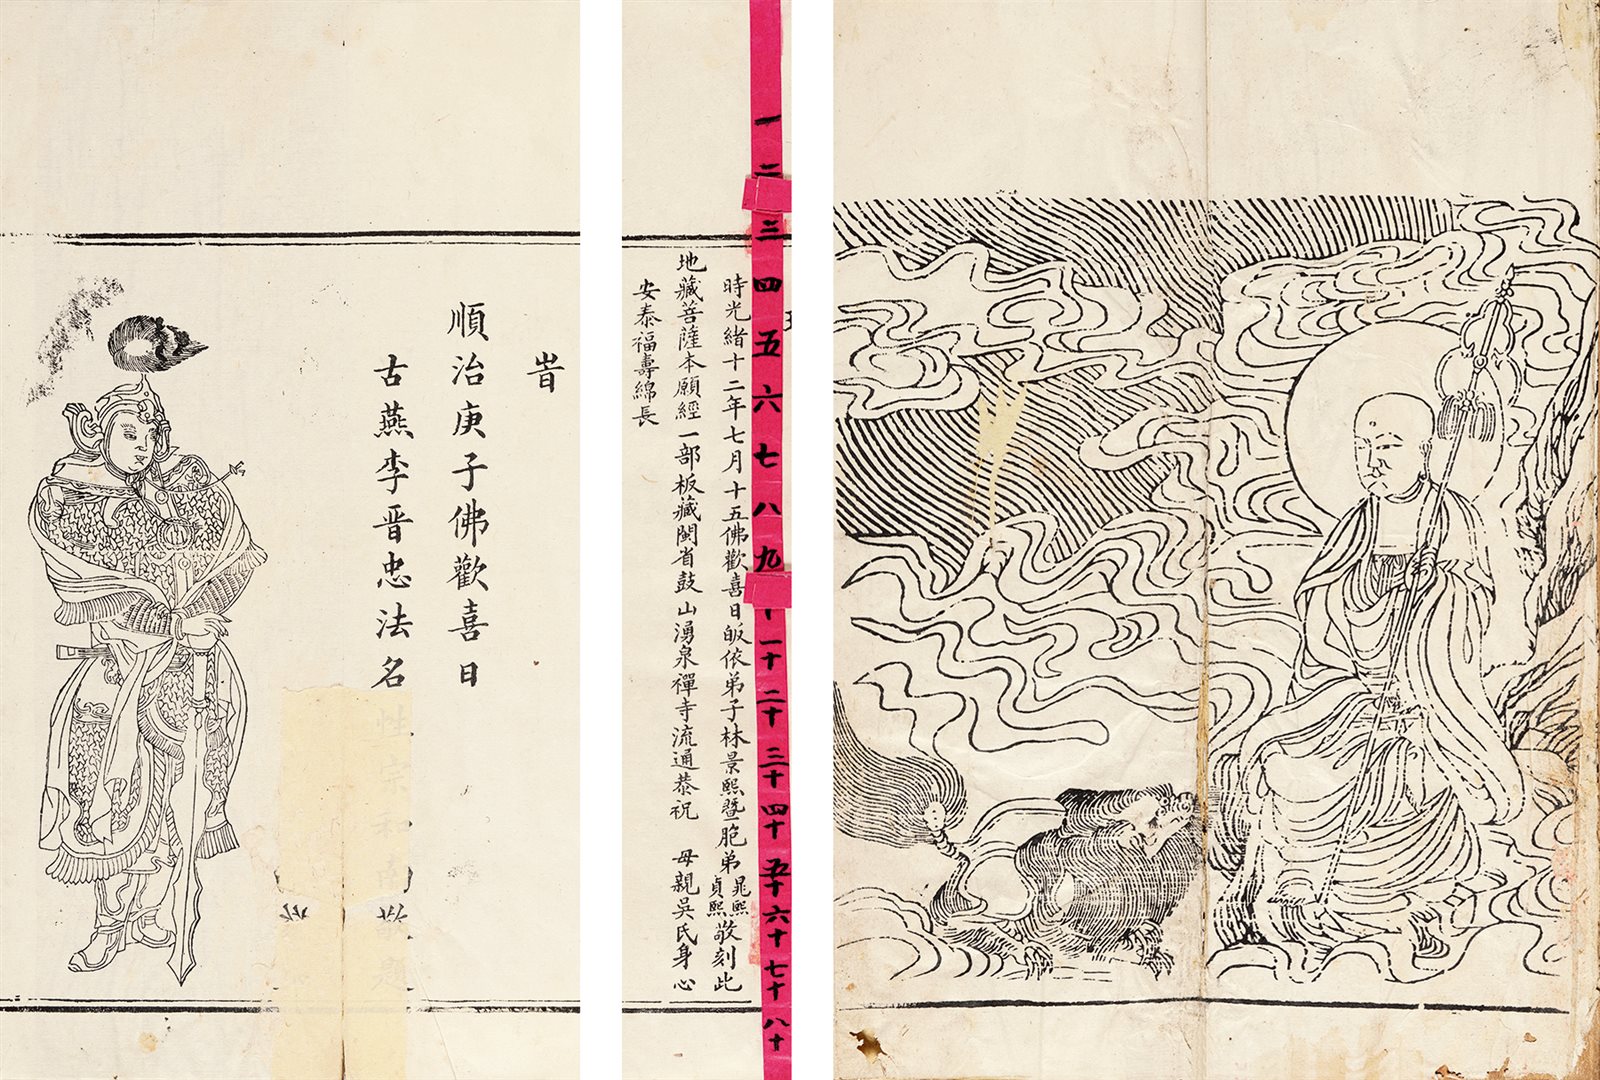 旹
順治庚子佛歡喜日
古燕李晋忠法名性宗和南
一 二 三 四 五 六 七 八 九 十 一十 二十 三十 四十 五十 六十 七十 八十
時光緒十二年七月十五佛歡喜日皈依弟子林景熙暨胞弟晁熙貞熙敬刻此
地藏菩薩本願經一部板藏閩省鼓山湧泉禪寺流通恭祝 母親吳氏身心
安泰福壽綿長